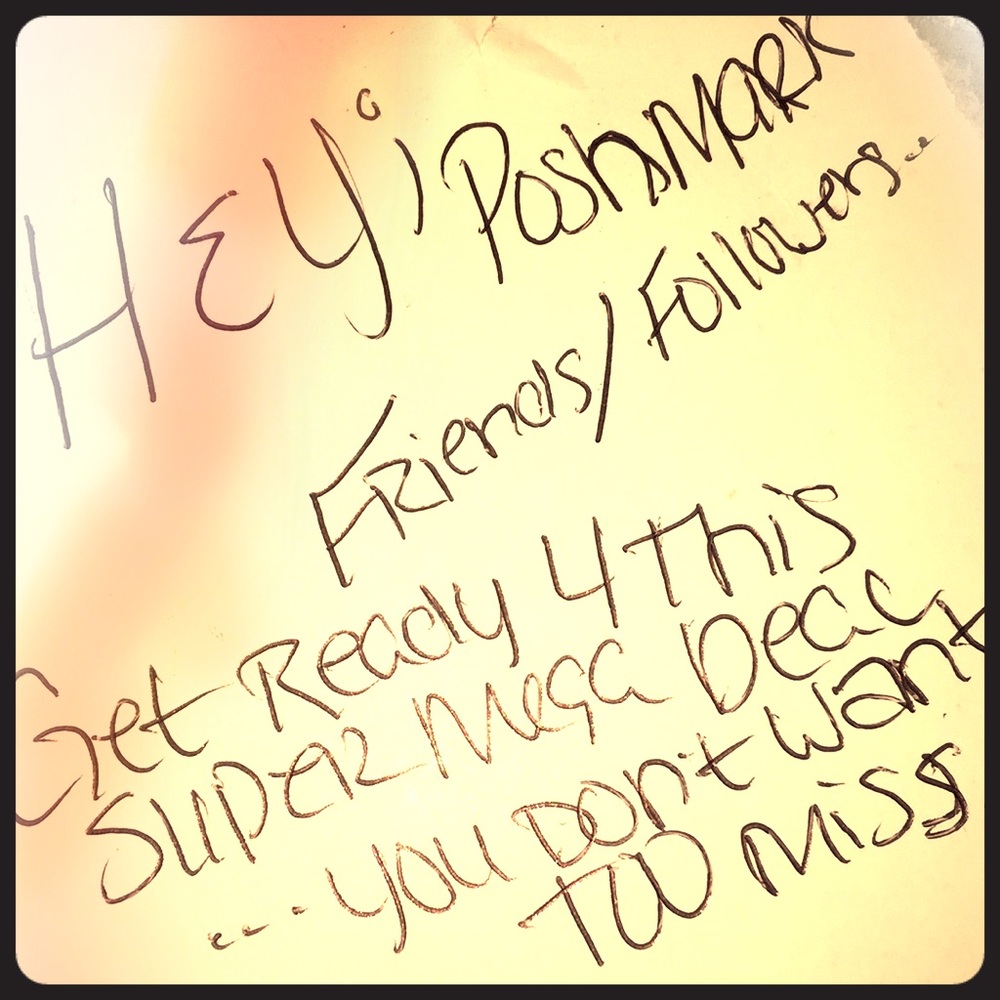 HEY, Poshmark
Friends/Followers..
Get Ready 4 This
Super Mega Deal
...You Don't want
Too Miss